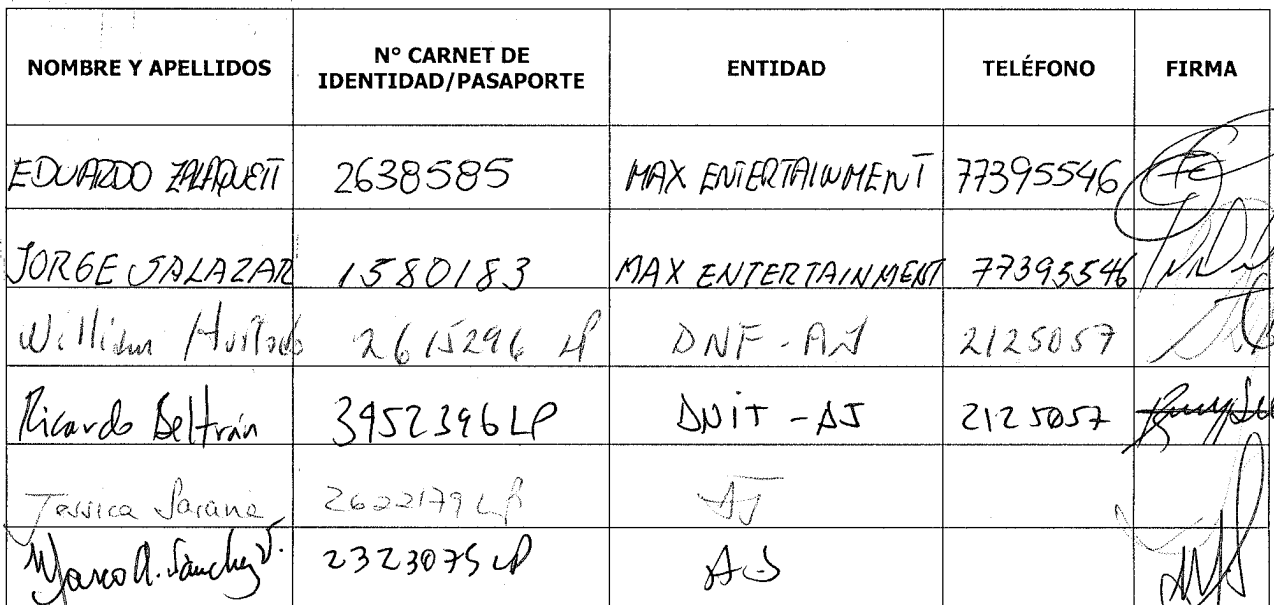 NOMBRE Y APELLIDOS N° CARNET DE IDENTIDAD/PASAPORTE ENTIDAD TELÉFONO FIRMA
EDUARDO ZALAQUETT 2638585 MAX ENTERTAINMENT 77395546
JORGE SALAZAR 1580183 MAX ENTERTAINMENT 77395546
William Hurtado 2615296 LP DNF-AJ 2125057
Ricardo Beltrán 3952396 LP DNIT-AJ 2125057
Jessica 2622179 LP AJ
Marco A. Sánchez V. 2323075 LP AJ